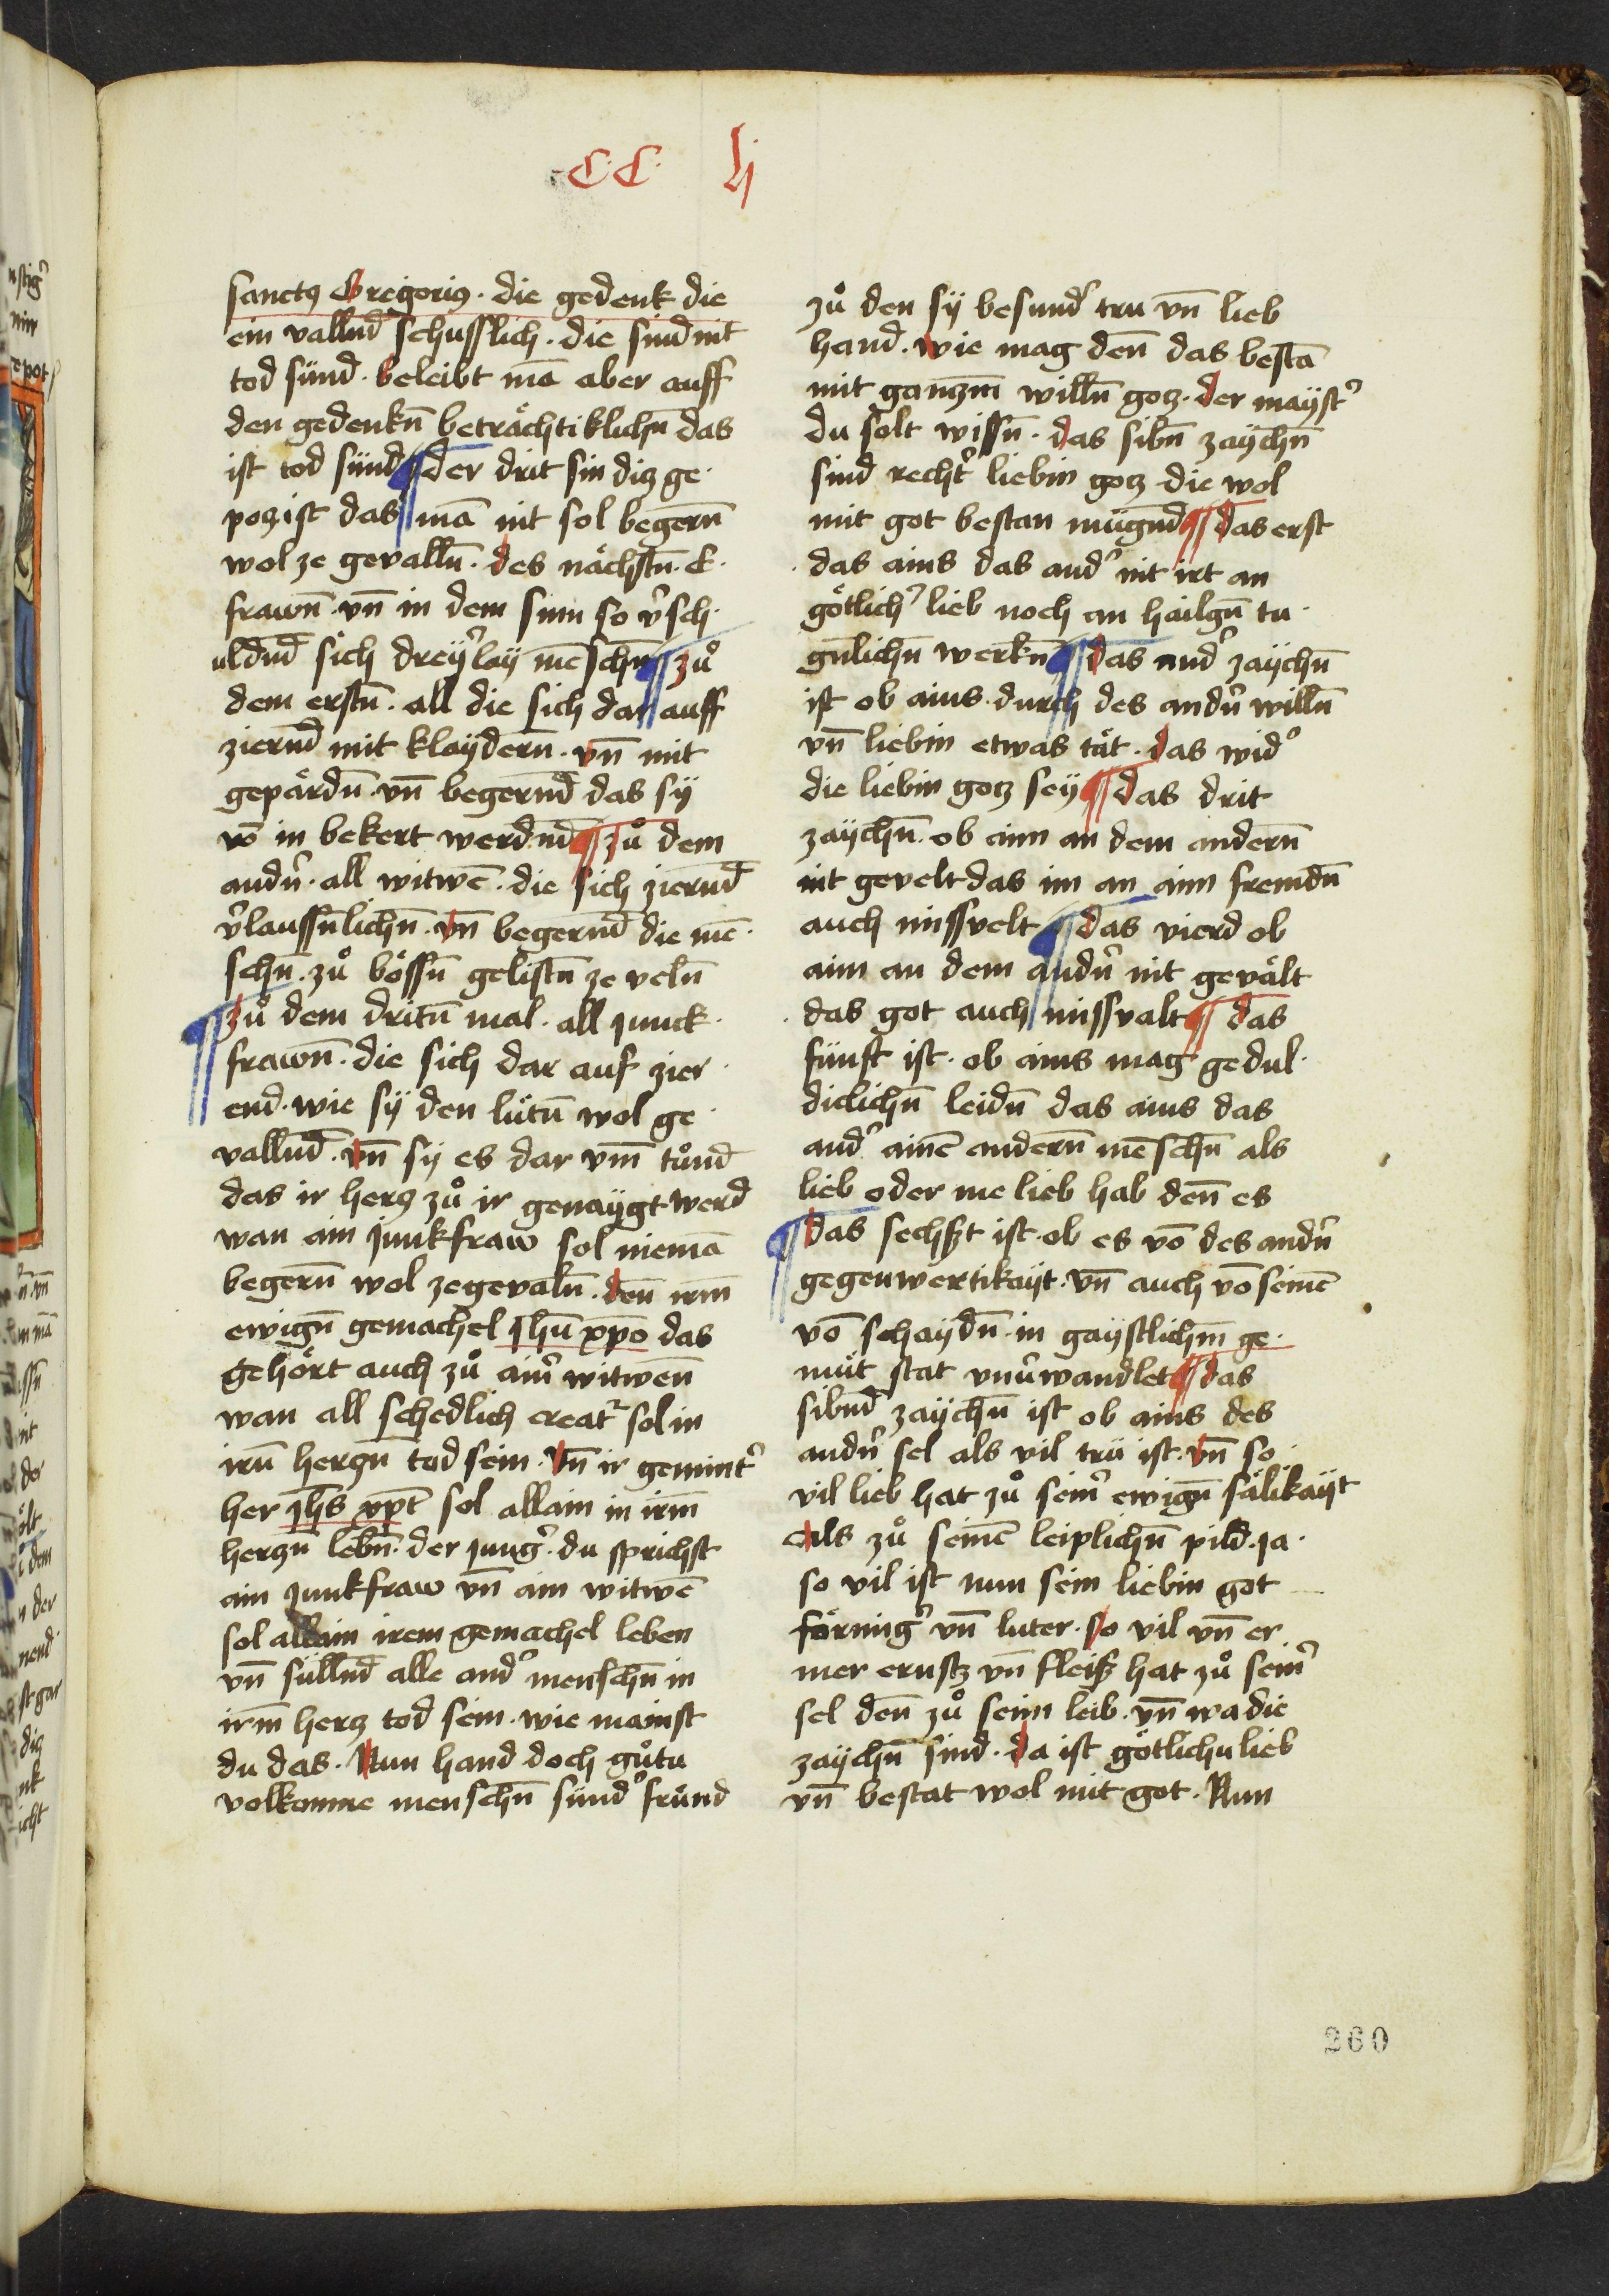 C·C· lj
sanctꝰ Gregoriꝰ · die gedenk die
ein vallnd̄ schusslich · die sind nit
tod sünd · beleibt mā aber auff
den gedenkn̄ beträchtiklichn̄ das
ist tod sünd ¶ der drit sin diz ge·
poz ist das mā nit sol begern̄
wol ze gevalln̄ · des nächstn̄ · E·
frawn̄ · vn̄ in dem sinn so v̓sch·
uldnd̄ sich dreyr̓lay mēschn̄ ¶ zuͦ
dem erstn̄ · all die sich dar auff
ziernd̄ mit klaydern̄ · vn̄ mit
gepärdn̄ · vn̄ begernd̄ das sy
vō in bekert werdnd̄ ¶ zuͦ dem
andn̓ · all witwē · die sich ziernd̄
v̓laussn̄lichn̄ · vn̄ begernd̄ die mē·
schn̄ · zuͦ bössn̄ gelistn̄ ze veln̄
¶ zuͦ dem dritn̄ mal · all junck·
frawn̄ · die sich dar auf zier·
end · wie sy den lütn̄ wol ge·
vallnd̄ · vn̄ sy es dar vm̄ tuͦnd
das ir herz zuͦ ir genaygt werd
wan ain junkfraw sol niemā
begern̄ wol ze gevaln̄ · den̄ irm̄
ewign̄ gemachel jhū xp̄o das
gehört auch zuͦ ainr̓ witwen̄
wan all schedlich creatᷣ sol in
irn̄ herzn̄ tod sein · vn̄ ir gemintr̓
her jh̄s xp̄t sol allain in irm̄
herzn̄ lebn̄ · der jungr̓ · du sprichst
ain junkfraw vn̄ ain witwē
sol allain irem gemachel leben
vn̄ süllnd̄ alle andr̓ menschn̄ in
irm̄ herz tod sein · wie mainst
du das · Nun hand doch guͦtu
volkomne menschn̄ sundr̓ fründ
zuͦ den sy besundr̓ tru vn̄ lieb
hand · wie mag den̄ das bestā
mit ganzm̄ willn̄ goz · der maystr̓
du solt wissn̄ · das sibn̄ zaychn̄
sind rechtr̓ liebin goz die wol
mit got bestan mügnd̄ ¶ das erst
das ains das andr̓ nit irt an
götlichr̓ lieb noch an hailgn̄ tu·
gn̄lichn̄ werkn̄ ¶ das andr̓ zaychn̄
ist ob ains · durch des andn̓ willn̄
vn̄ liebin etwas tät · das widr̓
die liebin goz sey ¶ das drit
zaychn̄ · ob aim an dem andern̄
nit gevelt das im an aim fremdn̄
auch missvelt ¶ das vierd ob
aim an dem andn̓ nit gevält
das got auch missvalt ¶ das
fünft ist · ob ains mag gedul·
diclichn̄ leidn̄ das ains das
andr̓ ainē andern̄ mēschn̄ als
lieb oder me lieb hab den̄ es
¶ das sechst ist · ob es vō des andn̓
gegenwertikayt · vn̄ auch vō seinē
vō schaydn̄ · in gaystlichm̄ ge·
müt stat vnv̓wandlet ¶ das
sibnd̄ zaychn̄ ist ob ains des
andn̓ sel als vil trü ist · vn̄ so
vil lieb hat zuͦ seinr̓ ewign̄ sälikayt
Als zuͦ seinē leiplichn̄ pild · ja ·
so vil ist nun sein liebin got
förmigr̓ vn̄ luter · so vil vn̄ er
mer ernstz vn̄ fleiß hat zuͦ seinr̓
sel den̄ zuͦ seim leib · vn̄ wa die
zaychn̄ sind · da ist götlichu lieb
vn̄ bestat wol mit got · Nun
260